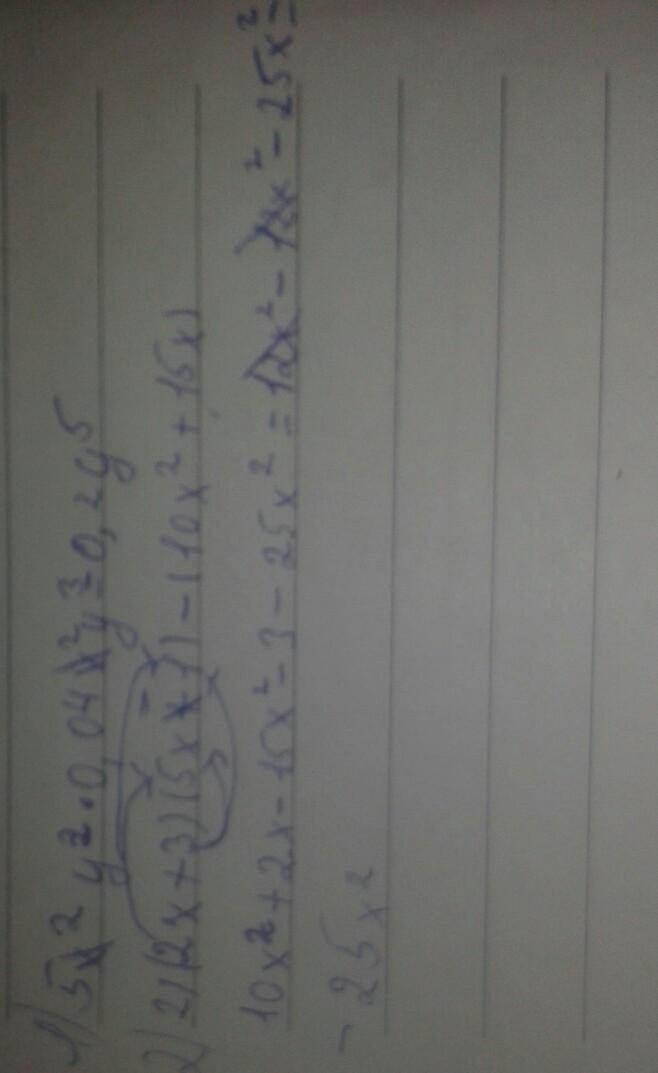 1) 5x² y² · 0,04 x² y³ = 0,2y⁵
2) 2)(2x+3)(5x - 1) - (10x² + 15x)
10x² + 2x - 15x² - 3 - 25x² = 12x² - 12x² - 25x² =
- 25x²